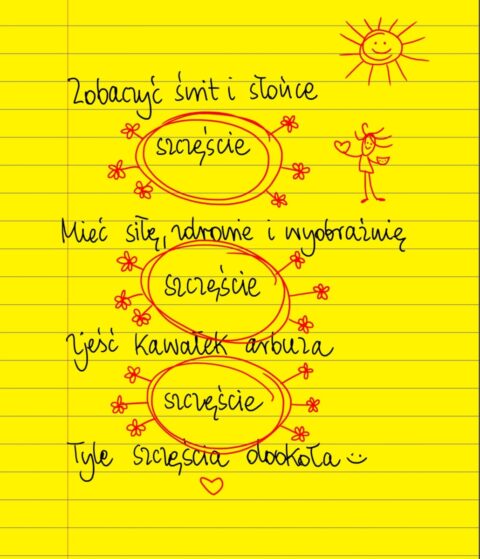 Zobaczyć świt i słońce
szczęście
Mieć siłę, zdrowie i wyobraźnię
szczęście
Zjeść kawałek arbuza
szczęście
Tyle szczęścia dookoła :)